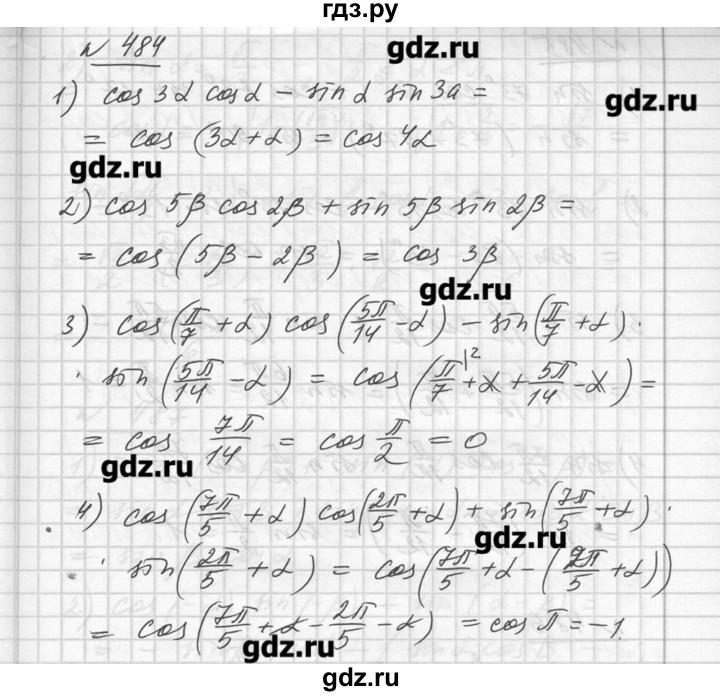 гдз.ру
№ 484
gdz.ru
1) cos 3α cos α - sin α sin 3a =
gdz.ru
= cos (3α + α) = cos 4α
gdz.ru
2) cos 5β cos 2β + sin 5β sin 2β =
= cos (5β - 2β) = cos 3β
gdz.ru
3) cos(π/7 + α) cos(5π/14 - α) - sin(π/7 + α) ·
· sin(5π/14 - α) = cos(π/7 |² + α + 5π/14 - α) =
= cos 7π/14 = cos π/2 = 0
gdz.ru
4) cos(7π/5 + α) cos(2π/5 + α) + sin(7π/5 + α) ·
gdz.ru
· sin(2π/5 + α) = cos(7π/5 + α - (2π/5 + α))
= cos(7π/5 + α - 2π/5 - α) = cos π = -1.
gdz.ru
gdz.ru